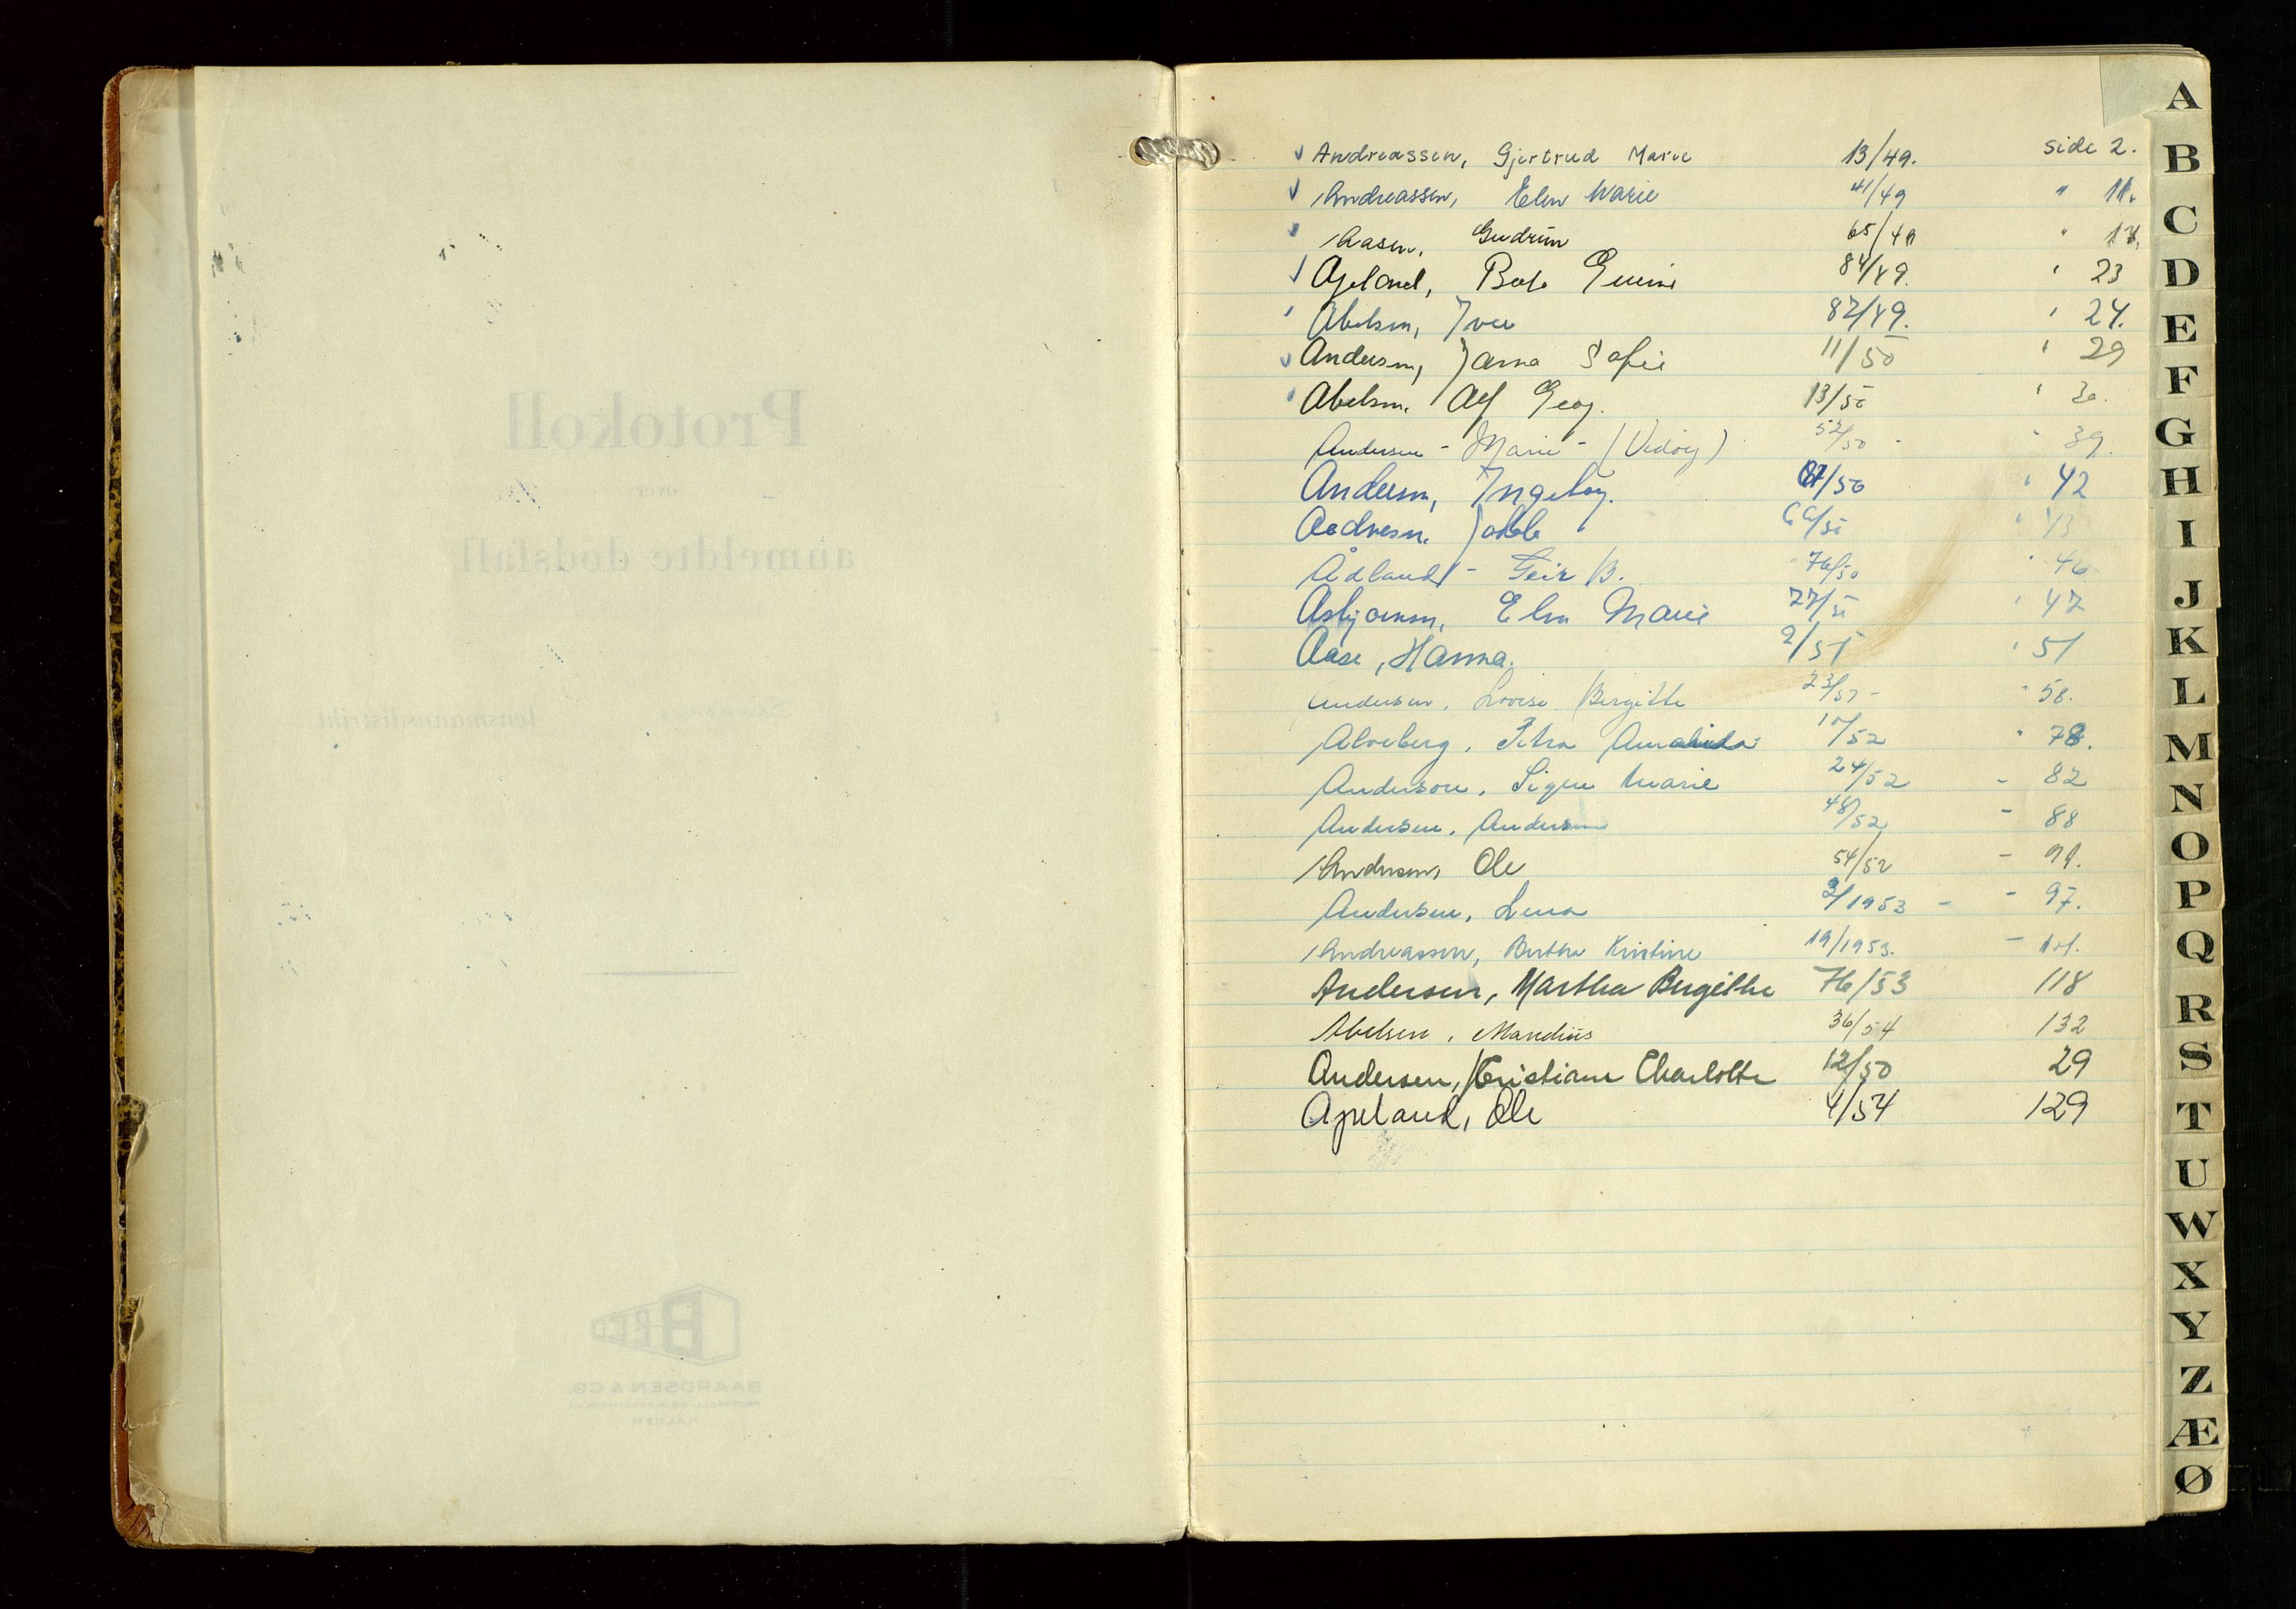 Protokoll
over
anmeldte dødsfall
i
lensmannsdistrikt
BRCO
BAARDSEN & CO
HALDEN
Andreassen, Gjertrud Marie 13/49. side 2.
Andreassen, Elen Marie 41/49 " 11.
Aasen, Gudrun 65/49 "
Apeland, 84/49. " 23
Abelsen, Iver 87/49. " 24.
Andersen, Jarna Sofie 11/50 " 29
Abelsen, Alf Georg. 13/50 " 30.
Andersen - Marie - (Vedøy) 52/50 - " 39.
Andersen, Ingeborg. /50 " 42
Jakob 66/50 " 43
Ådland - Geir B. 76/50 " 46
Asbjørnsen, Elen Marie 77/50 " 47
Aase, Hanna. 2/51 " 51
Andersen, Lovise Bergitte 23/51 - " 58.
Alveberg, Petra Amalinda 10/52 " 78.
Anderson, Signe Marie 24/52 - 82
Andersen, Andersen 48/52 - 88
Andersen, Ole 54/52 -
Andersen, Lena 3/1953 - - 97.
Andreassen, Berthe Kristine 19/1953. - 101.
Andersen, Martha Bergithe 76/53 118
Abelsen, Maredius 36/54 132
Andersen, Kristiane Charlotte 12/50 29
Apeland, Ole 4/54 129
A
B
C
D
E
F
G
H
I
J
K
L
M
N
O
P
Q
R
S
T
U
W
X
Y
Z
Æ
Ø